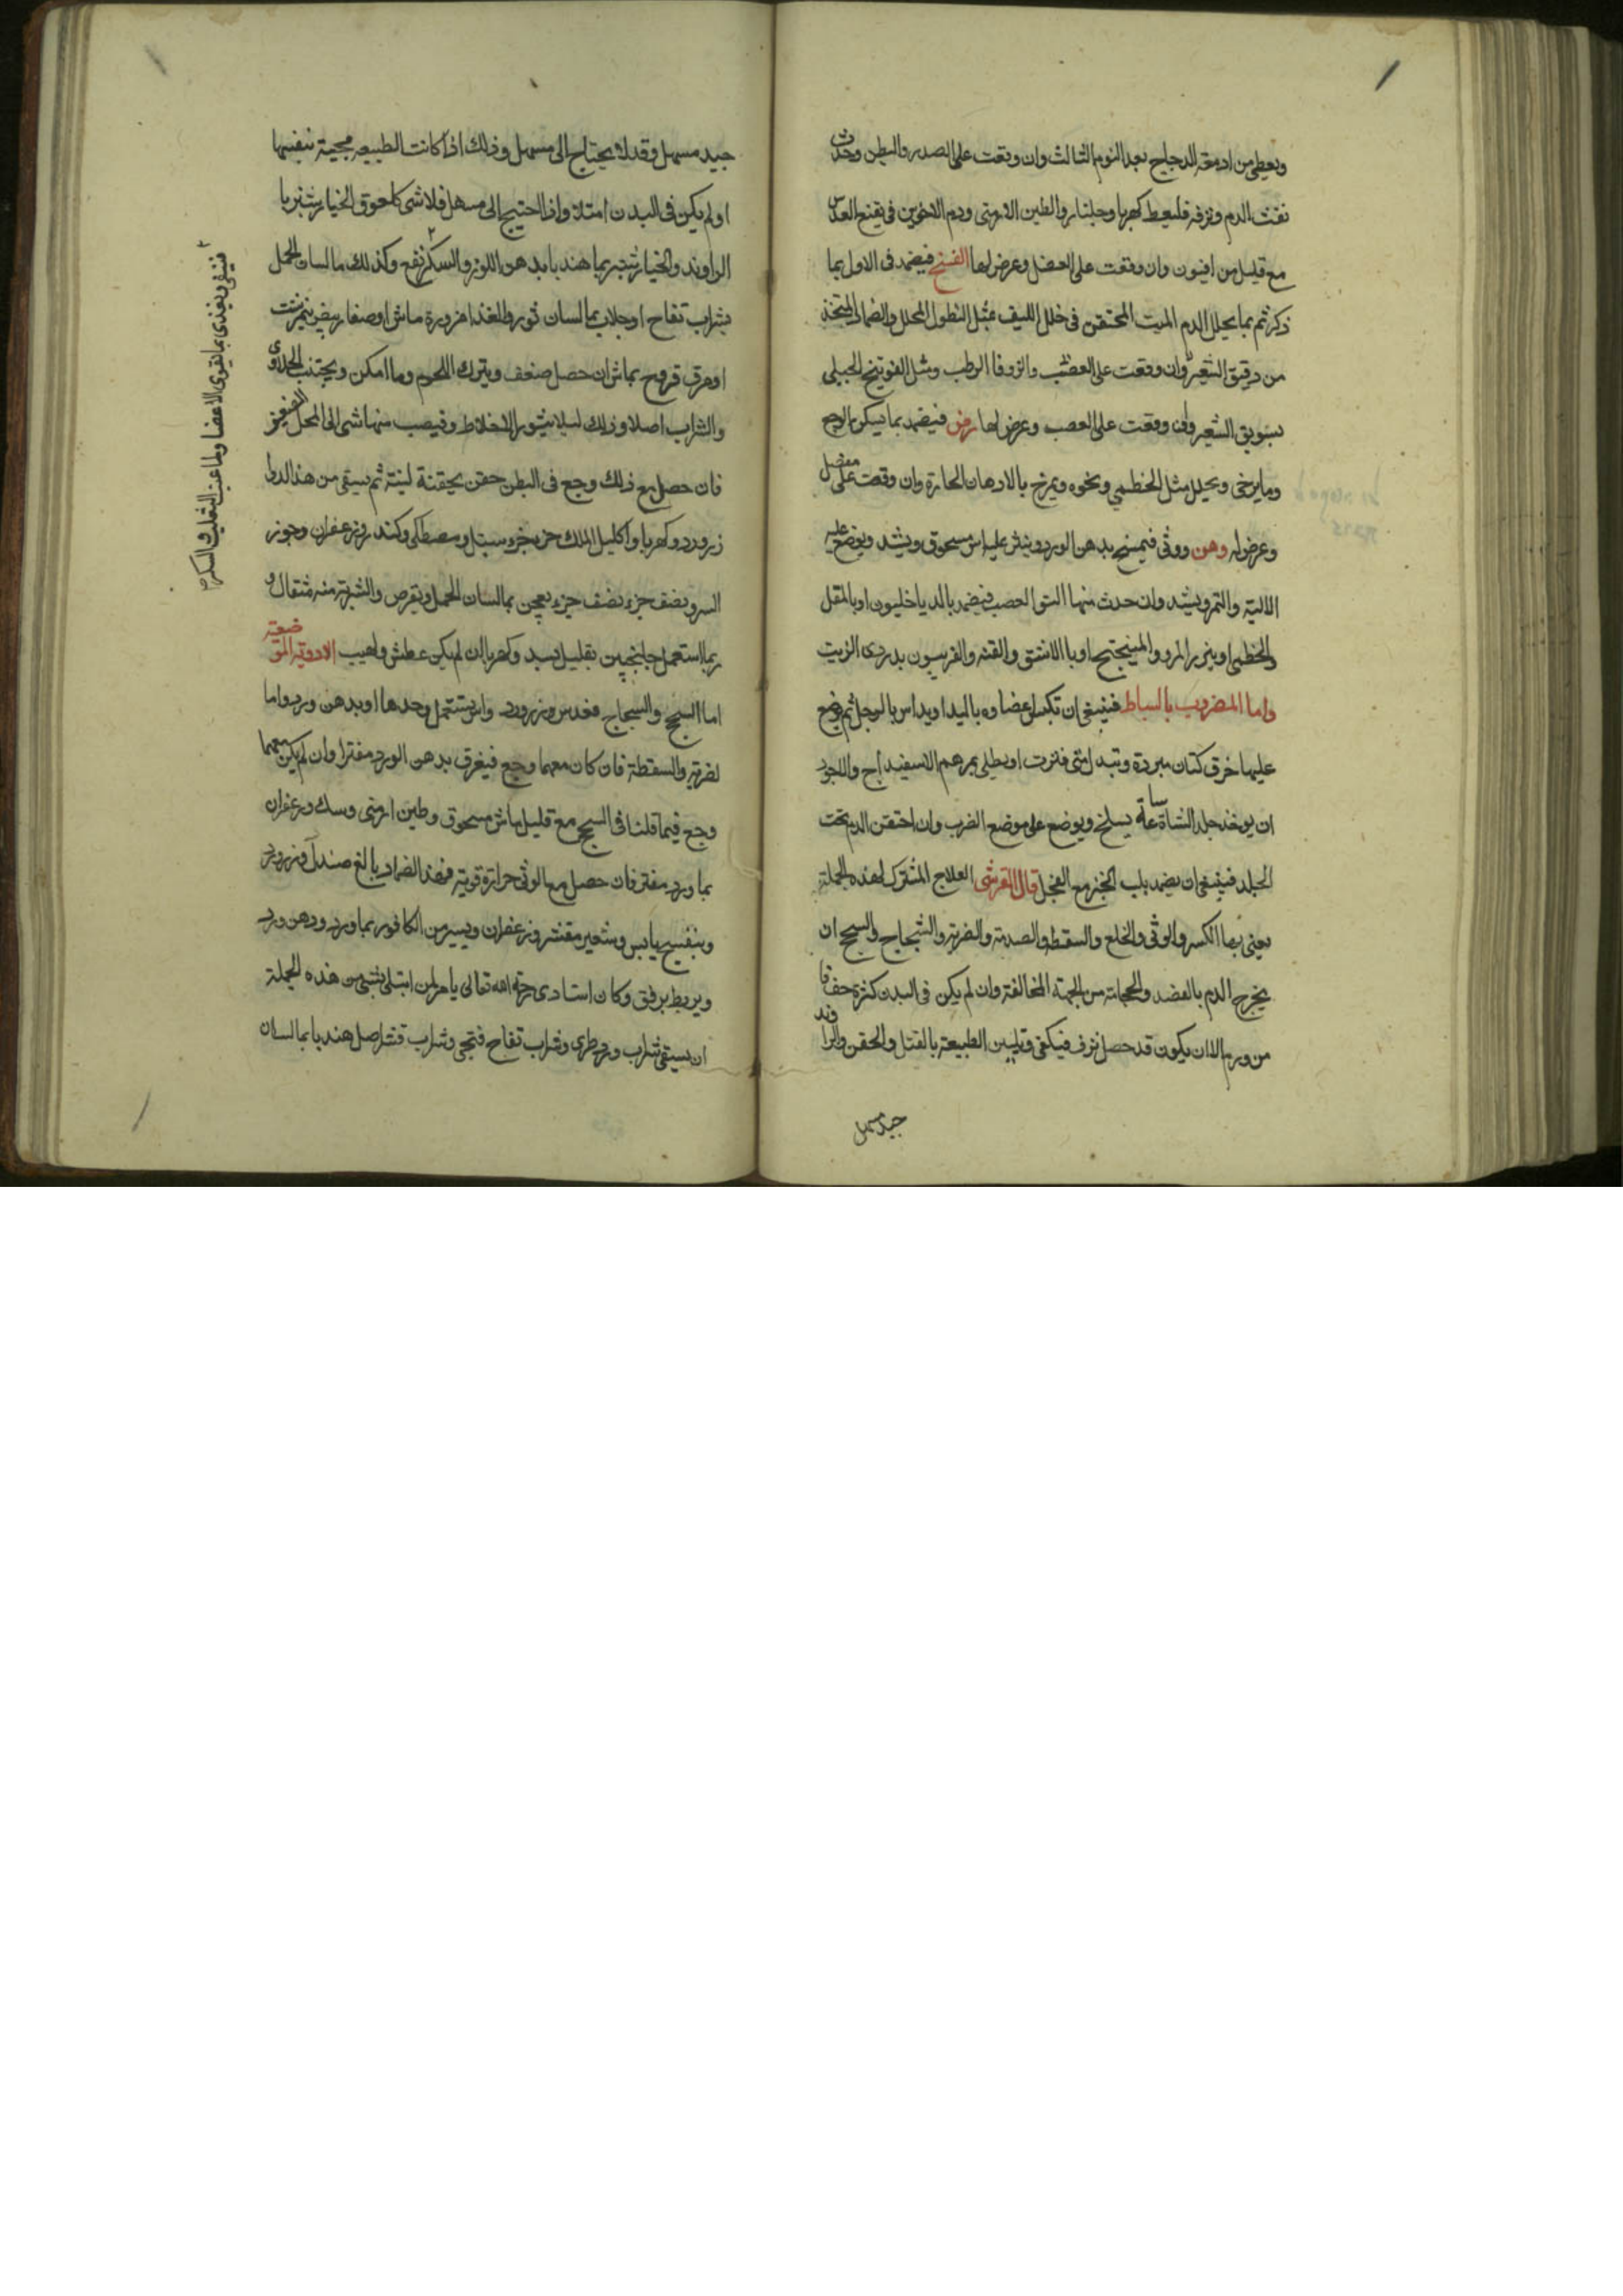 ويعطى من ادمغة الدجاج بعد اليوم الثالث وان وقعت على الصدر والبطن وحدث
نفث الدم ونزفه فليعط كهربا وجلنار والطين الارمنى ودم الاخوين فى نقيع العدس
مع قليل من افيون وان وقعت على العضل وعرض لها الفسخ فيضمد فى الاول بما
ذكر ثم بما يحلل الدم الميت المحتقن فى خلل الليف مثل النطول المحلل والضماد المتخذ
من دقيق الشعير وان وقعت على العصب والزوفا الرطب ومثل الفوتنج الجبلى
بسويق الشعير وان وقعت على العصب وعرض لها رض فيضمد بما يسكن الوجع
وما يرخى ويحلل مثل الخطمى ونحوه ويمرخ بالادهان الحارة وان وقعت على مفصل
وعرض له وهن ووثى فيمسح بدهن الورد وينثر عليه اس مسحوق ويشد ويوضع عليه
الالية والتمر ويشد وان حدث منها التوا العصب فيضمد بالدياخليون او بالمقل
والخطمى او ببزر المرو والميبختج او بالاشق والقنه والفربيون بدردى الزيت
واما المضروب بالسياط فينبغى ان تكبس اعضاوه باليد او يداس بالرجل ثم يوضع
عليها خرق كتان مبردة وتبدل متى فترت او يطلى بمرهم الاسفيداج واللجود
ان يوخذ جلد الشاة ساعة يسلخ ويوضع على موضع الضرب وان احتقن الدم تحت
الجلد فينبغى ان يضمد بلب الخبز مع الفجل قال القرشى العلاج المشترك لهذه الجملة
يعنى بها الكسر والوثى والخلع والسقطه والصدمة والضربة والشجاج والسحج ان
يخرج الدم بالفصد والحجامة من الجهة المخالفة وان لم يكن فى البدن كثرة خفافا
من ورم الا ان يكون قد حصل نزف فيكفى وتليين الطبيعة بالفتل والحقن والراوند
جيد مسهل
جيد مسهل وقد لا يحتاج الى مسهل وذلك اذا كانت الطبيعه مجيبة بنفسها
او لم يكن فى البدن امتلا واذا احتيج الى مسهل فلا شى كلعوق الخيار شنبر با
الراوند والخيار شنبر بما هندبا بدهن اللوز والسكر نفع وكذلك ما لسان الحمل
بشراب تفاح او جلاب بما لسان ثور والغذا مزورة ماش او صفار بيض نيمرشت
او مرق فروج بماش ان حصل ضعف ويترك اللحوم وما امكن ويجتنب الحلاوى
والشراب اصلا وذلك ليلا يثور الاخلاط وتنصب منها شى الى المحل الضعيف
فان حصل مع ذلك وجع فى البطن حقن بحقنة لينة ثم يسقى من هذا الدوا
زرورد وكهربا واكليل الملك جزء جزء سنبل ومصطكى وكندر وزعفران وجوز
السرو نصف جزء نصف جزء يعجن بما لسان الحمل ويقرص والشربة منه مثقال و
ربما استعمل جلنجبين بقليل بسد وكهربا ان لم يكن عطش ولهيب الادوية الموضعية
اما السحج والشجاج فعدس وزرورد واس يستعمل وحدها او بدهن ورد واما
لضربة والسقطة فان كان معها وجع فيغرق بدهن الورد مفترا وان لم يكن معهما
وجع فيما قلنا فى السحج مع قليل ماش مسحوق وطين ارمنى وسك وزعفران
بما ورد مفتر فان حصل مع الوثى حرارة قوية فهذا الضماد بالغ صندل وزرورد
وبنفسج يابس وشعير مقشر وزعفران ويسير من الكافور بما ورد ودهن ورد
ويربط برفق وكان استادى رحمة الله تعالى يامر لمن ابتلى بشى من هذه الجملة
ان يسقى شراب ورد طرى وشراب تفاح فتحى وشراب قشر اصل هندبا بما لسان
فينقى ويغذى بما يقوى الاعضا وما عنب الثعلب والسكر